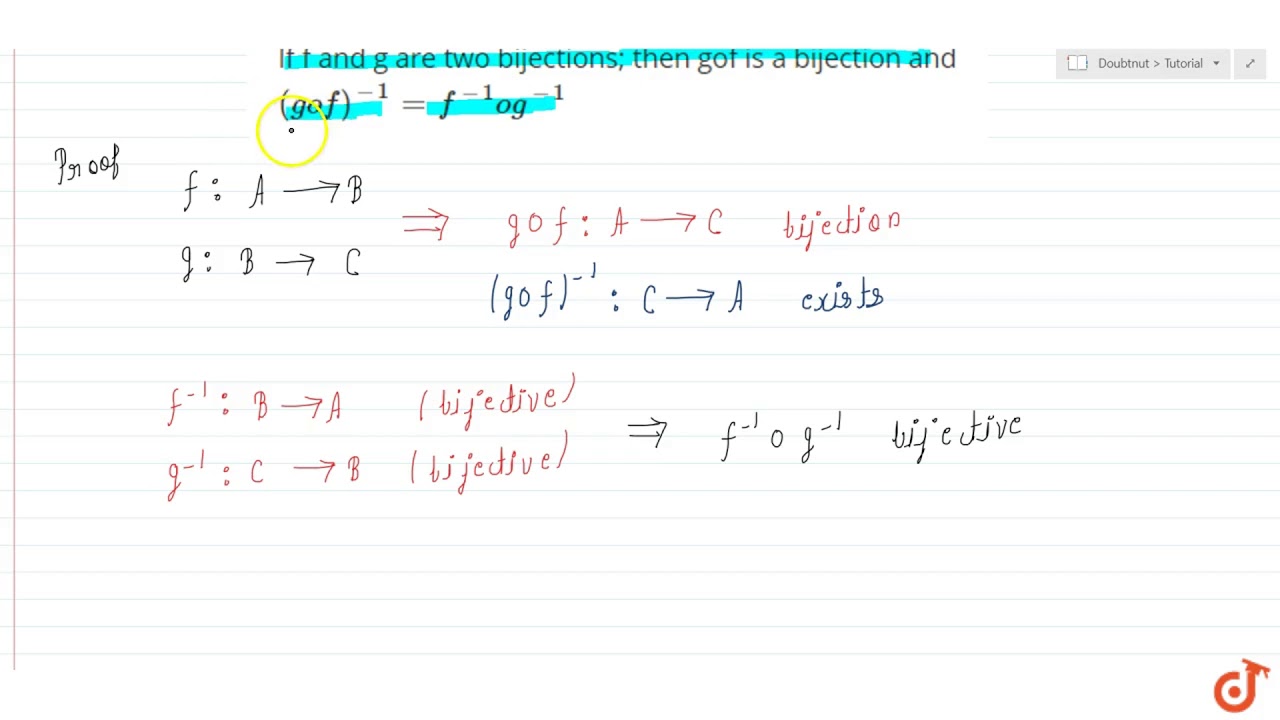 If f and g are two bijections; then gof is a bijection and
(gof)⁻¹ = f⁻¹og⁻¹
Doubtnut > Tutorial
Proof
f : A → B
g : B → C
⇒ gof : A → C bijection
(gof)⁻¹ : C → A exists
f⁻¹ : B → A (bijective)
g⁻¹ : C → B (bijective)
⇒ f⁻¹ o g⁻¹ bijective